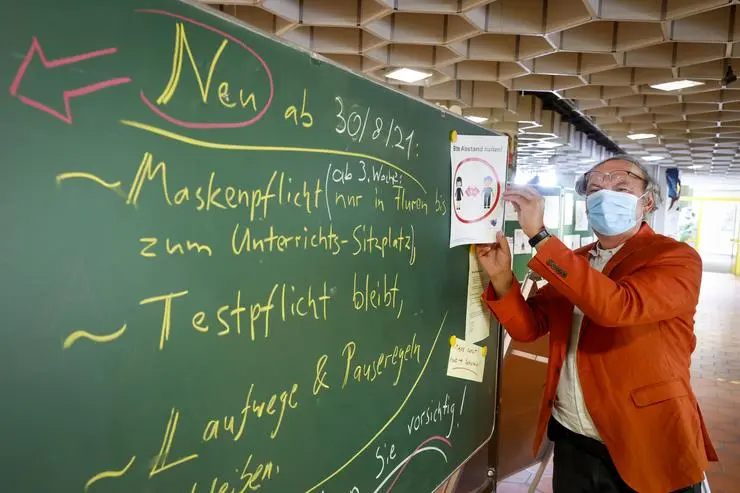 Neu ab 30/8/21:
~ Maskenpflicht (ab 3. Woche:
nur in Fluren bis
zum Unterrichts-Sitzplatz),
~ Testpflicht bleibt,
~ Laufwege & Pauseregeln
bleiben.
Sie vorsichtig!
Bitte Abstand halten!